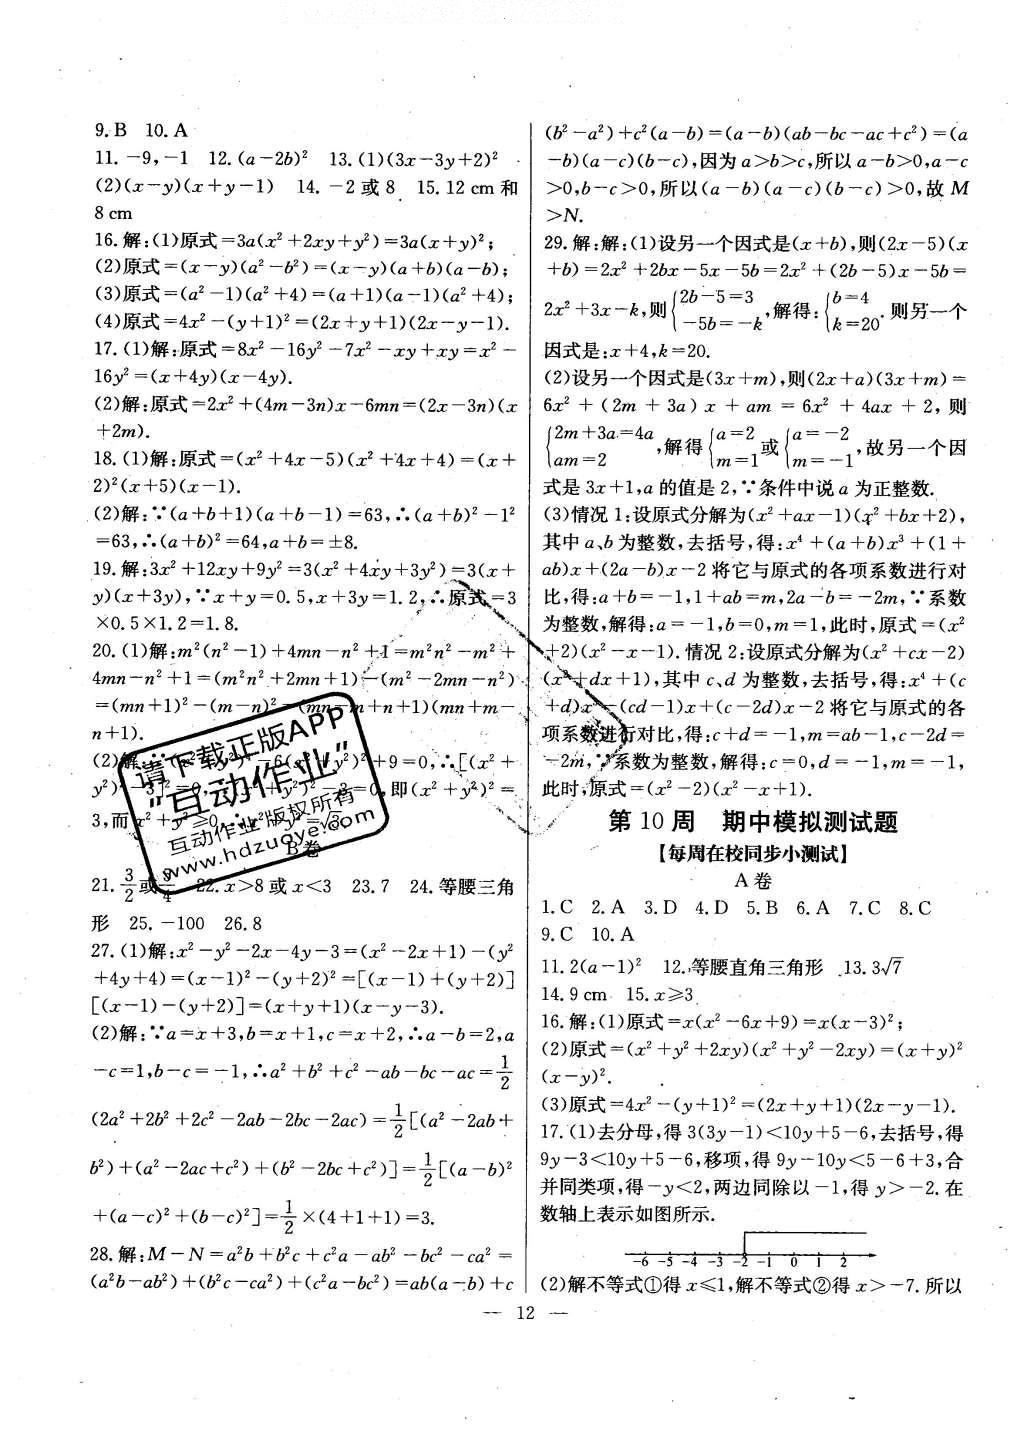 9. B　10. A
11. －9，－1　12. (a－2b)²　13. (1)(3x－3y＋2)²
(2)(x－y)(x＋y－1)　14. －2或8　15. 12 cm和
8 cm
16. 解：(1)原式＝3a(x²＋2xy＋y²)＝3a(x＋y)²；
(2)原式＝(x－y)(a²－b²)＝(x－y)(a＋b)(a－b)；
(3)原式＝(a²－1)(a²＋4)＝(a＋1)(a－1)(a²＋4)；
(4)原式＝4x²－(y＋1)²＝(2x＋y＋1)(2x－y－1).
17. (1)解：原式＝8x²－16y²－7x²－xy＋xy＝x²－
16y²＝(x＋4y)(x－4y).
(2)解：原式＝2x²＋(4m－3n)x－6mn＝(2x－3n)(x
＋2m).
18. (1)解：原式＝(x²＋4x－5)(x²＋4x＋4)＝(x＋
2)²(x＋5)(x－1).
(2)解：∵(a＋b＋1)(a＋b－1)＝63，∴(a＋b)²－1²
＝63，∴(a＋b)²＝64，a＋b＝±8.
19. 解：3x²＋12xy＋9y²＝3(x²＋4xy＋3y²)＝3(x＋
y)(x＋3y)，∵x＋y＝0.5，x＋3y＝1.2，∴原式＝3
×0.5×1.2＝1.8.
20. (1)解：m²(n²－1)＋4mn－n²＋1＝m²n²－m²＋
4mn－n²＋1＝(m²n²＋2mn＋1)－(m²－2mn－n²)
＝(mn＋1)²－(m－n)²＝(mn－m＋n＋1)(mn＋m－
n＋1).
(2)解：∵(x²＋y²)²－6(x²＋y²)＋9＝0，∴[(x²＋
y²)－3]²＝0，∴(x²＋y²)－3＝0，即(x²＋y²)²＝
3，而x²＋y²≥0，∴x²＋y²＝√3.
B卷
21. 3/2或3/4　22. x＞8或x＜3　23. 7　24. 等腰三角
形　25. －100　26. 8
27. (1)解：x²－y²－2x－4y－3＝(x²－2x＋1)－(y²
＋4y＋4)＝(x－1)²－(y＋2)²＝[(x－1)＋(y＋2)]
[(x－1)－(y＋2)]＝(x＋y＋1)(x－y－3).
(2)解：∵a＝x＋3，b＝x＋1，c＝x＋2，∴a－b＝2，a
－c＝1，b－c＝－1，∴a²＋b²＋c²－ab－bc－ac＝1/2
(2a²＋2b²＋2c²－2ab－2bc－2ac)＝1/2[(a²－2ab＋
b²)＋(a²－2ac＋c²)＋(b²－2bc＋c²)]＝1/2[(a－b)²
＋(a－c)²＋(b－c)²]＝1/2×(4＋1＋1)＝3.
28. 解：M－N＝a²b＋b²c＋c²a－ab²－bc²－ca²＝
(a²b－ab²)＋(b²c－ca²)＋(c²a－bc²)＝ab(a－b)＋c
(b²－a²)＋c²(a－b)＝(a－b)(ab－bc－ac＋c²)＝(a
－b)(a－c)(b－c)，因为a＞b＞c，所以a－b＞0，a－c
＞0，b－c＞0，所以(a－b)(a－c)(b－c)＞0，故M
＞N.
29. 解：解：(1)设另一个因式是(x＋b)，则(2x－5)(x
＋b)＝2x²＋2bx－5x－5b＝2x²＋(2b－5)x－5b＝
2x²＋3x－k，则{2b－5＝3　－5b＝－k，解得：{b＝4　k＝20.则另一个
因式是：x＋4，k＝20.
(2)设另一个因式是(3x＋m)，则(2x＋a)(3x＋m)＝
6x²＋(2m＋3a)x＋am＝6x²＋4ax＋2，则
{2m＋3a＝4a　am＝2，解得{a＝2　m＝1或{a＝－2　m＝－1，故另一个因
式是3x＋1，a的值是2，∵条件中说a为正整数.
(3)情况1：设原式分解为(x²＋ax－1)(x²＋bx＋2)，
其中a、b为整数，去括号，得：x⁴＋(a＋b)x³＋(1＋
ab)x＋(2a－b)x－2将它与原式的各项系数进行对
比，得：a＋b＝－1，1＋ab＝m，2a－b＝－2m，∵系数
为整数，解得：a＝－1，b＝0，m＝1，此时，原式＝(x²
＋2)(x²－x－1). 情况2：设原式分解为(x²＋cx－2)
(x²＋dx＋1)，其中c、d为整数，去括号，得：x⁴＋(c
＋d)x³－(cd－1)x＋(c－2d)x－2将它与原式的各
项系数进行对比，得：c＋d＝－1，m＝ab－1，c－2d＝
－2m，∵系数为整数，解得：c＝0，d＝－1，m＝－1，
此时，原式＝(x²－2)(x²－x＋1).
第10周　期中模拟测试题
【每周在校同步小测试】
A卷
1. C　2. A　3. D　4. D　5. B　6. A　7. C　8. C
9. C　10. A
11. 2(a－1)²　12. 等腰直角三角形　13. 3√7
14. 9 cm　15. x≥3
16. 解：(1)原式＝x(x²－6x＋9)＝x(x－3)²；
(2)原式＝(x²＋y²＋2xy)(x²＋y²－2xy)＝(x＋y)²
(x－y)².
(3)原式＝4x²－(y＋1)²＝(2x＋y＋1)(2x－y－1).
17. (1)去分母，得3(3y－1)＜10y＋5－6，去括号，得
9y－3＜10y＋5－6，移项，得9y－10y＜5－6＋3，合
并同类项，得－y＜2，两边同除以－1，得y＞－2. 在
数轴上表示如图所示.
－6 －5 －4 －3 －2 －1 0 1 2
(2)解不等式①得x≤1，解不等式②得x＞－7. 所以
— 12 —
请下载正版APP
“互动作业”
互动作业 版权所有
www.hdzuoye.com